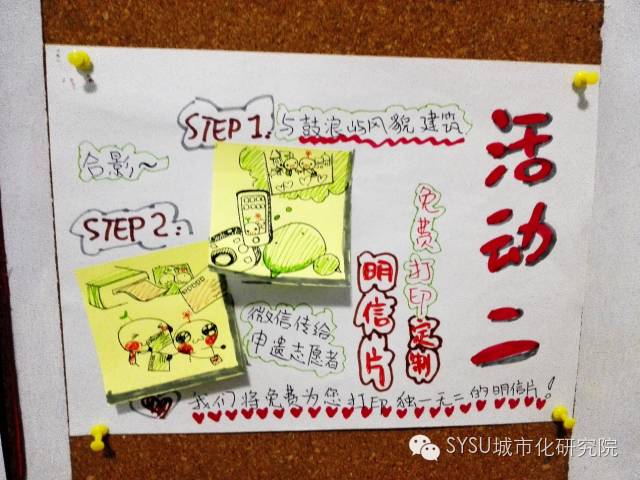 活动二
STEP 1:与鼓浪屿风貌建筑
合影~
STEP 2:
微信传给
申遗志愿者
免费打印定制
明信片
我们将免费为您打印独一无二的明信片!
SYSU城市化研究院